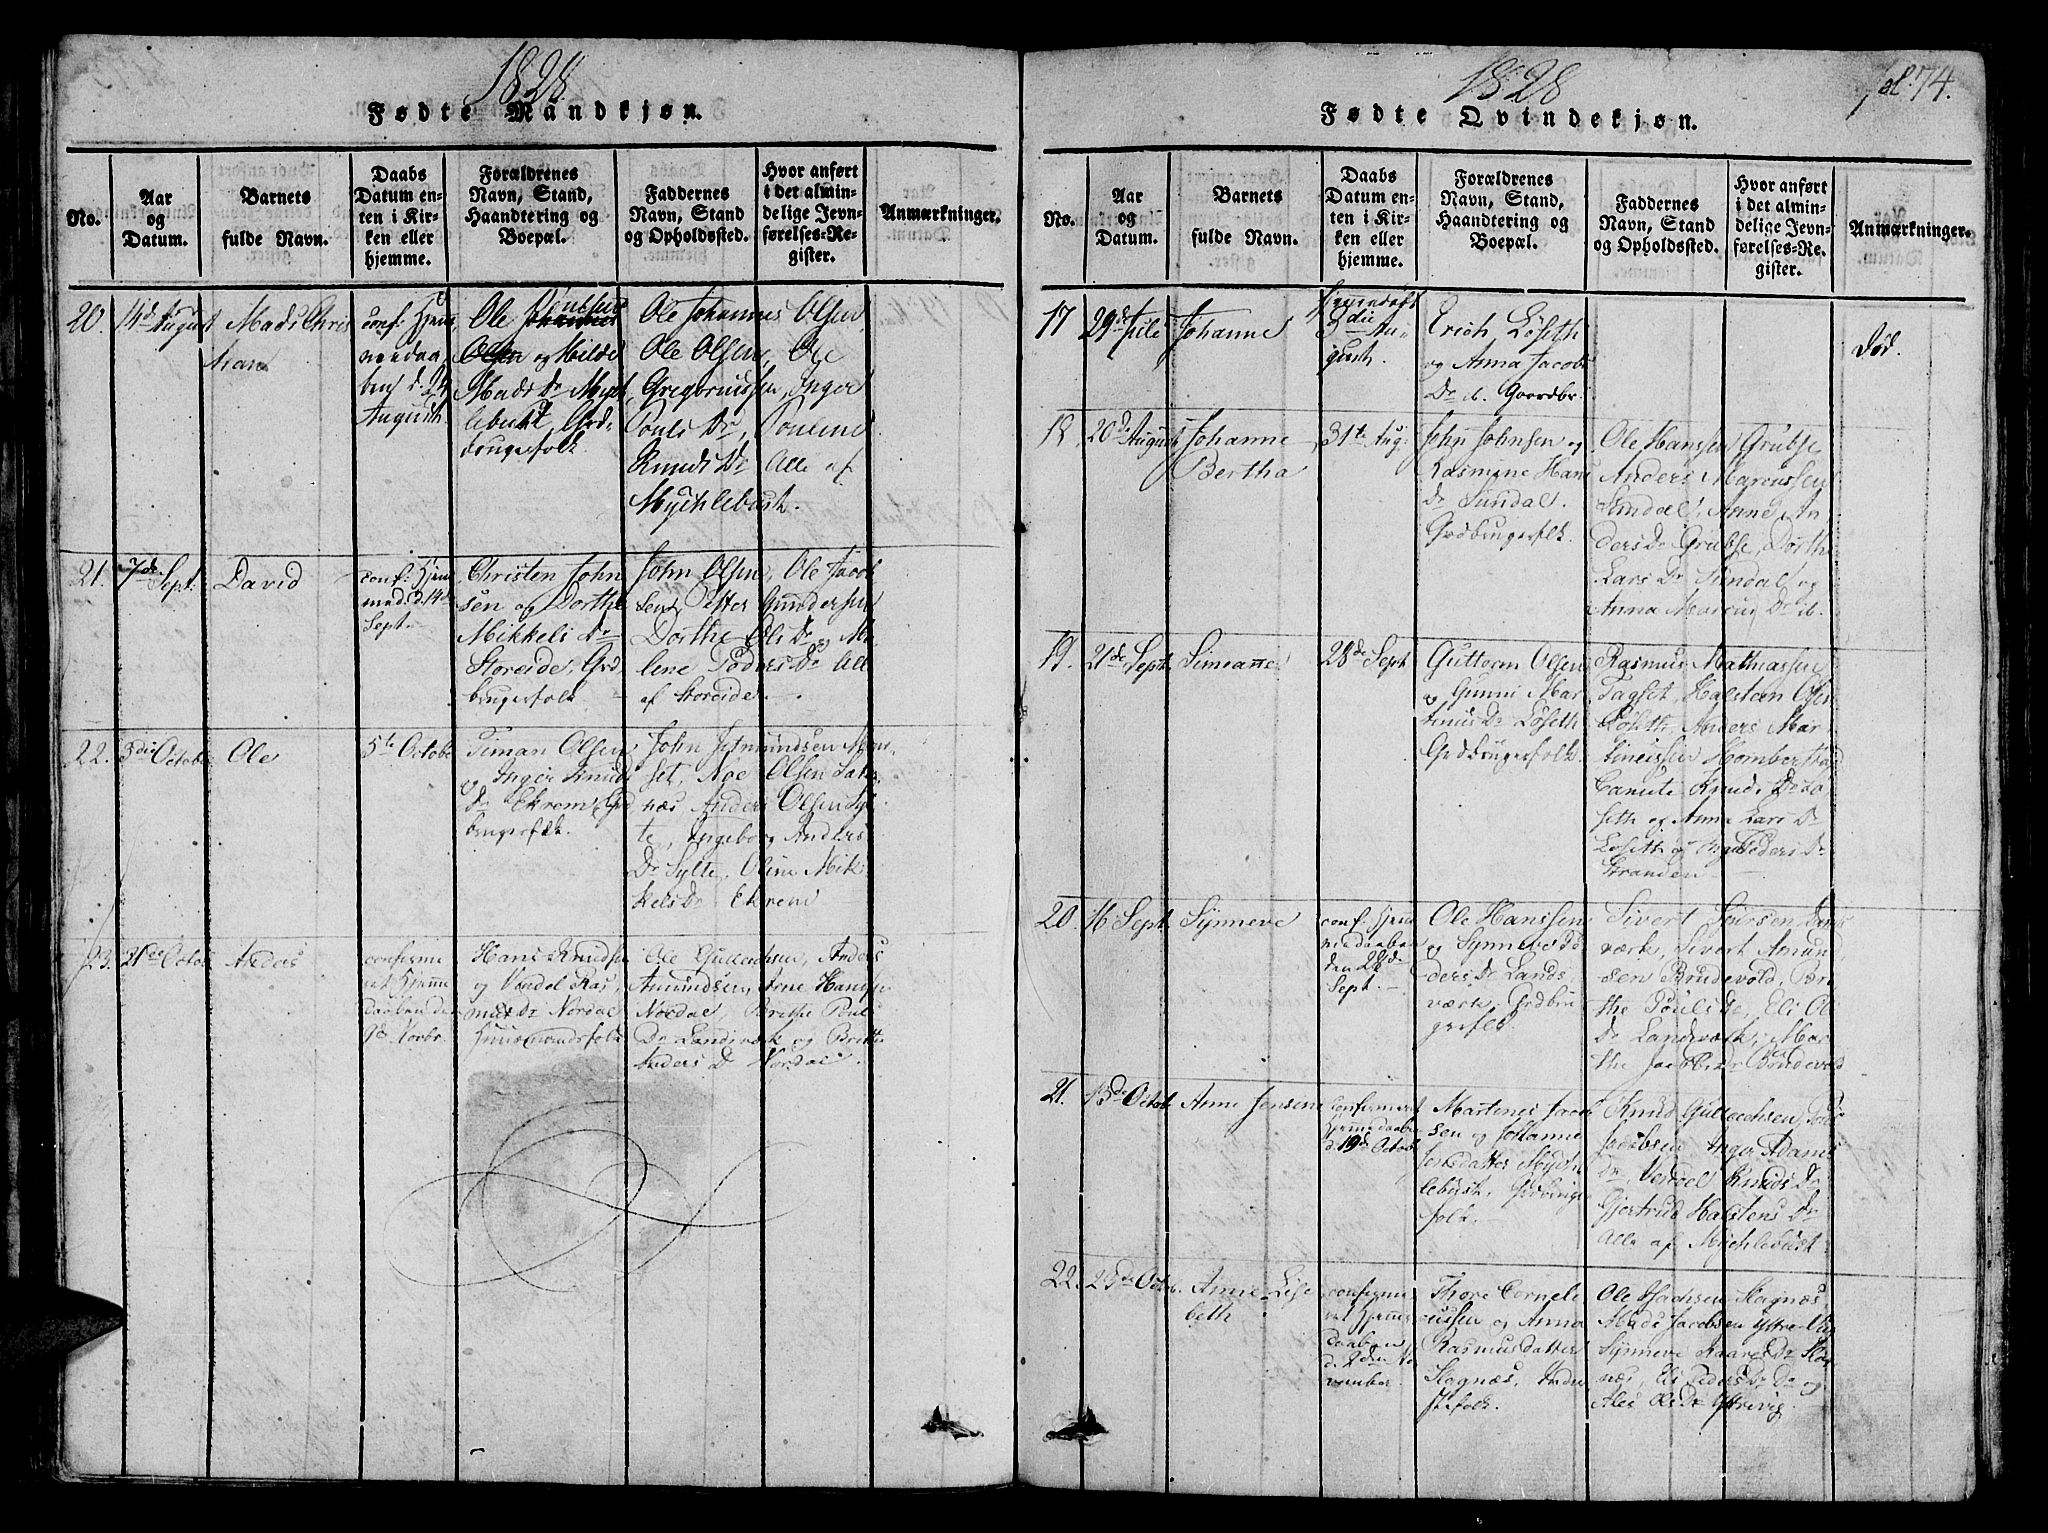 1828
Fødte Mandkjøn.
No.
Aar
og
Datum.
Barnets
fulde Navn.
Daabs
Datum en-
ten i Kir-
ken eller
hjemme.
Forældrenes
Navn, Stand,
Haandtering og
Boepæl.
Faddernes
Navn, Stand
og Opholdssted.
Hvor anført
i det almin-
delige Jevn-
førelses-Re-
gister.
Anmærkninger.
20.
14d August
Mads Chris
tian
conf. Hjem
medaa
bes d. 24
August
Ole
og Milde
Mads Dr Myck
lebust, Grd,
brugerfolk
Ole Johannes Olsen
Ole Olsen, Ole
Gregoriussen, Inger
Pouls Dr,
Knuds Dr Alle af
Mychlebust.
21.
7de Sept.
David
conf. Hjem
med. d. 14de
Sept.
Christen John
sen og Dorthe
Mikkels Dr
Storeide, Grd
brugerfolk
John Olsen, Ole Jacob
sen, Petter Gundersen
Dorthe Ols Dr og Ma
lene Peders Dr All
af Storeide.
22.
3die Octobr
Ole
5te Octobr
Timan Olsen
og Inger Knuds
Dr Ekrem, Grd
brugerfolk.
John
set, Noe Olsen
næs Anders Olsen Syl
te, Ingeborg Anders
Dr Sylte, Oline Mik
kelsDr Ekrem
23.
21de Octob
Anders
confirme
ret Hjemme
daaben den
9de Novbr.
Hans Knudsen
og Vendel Ras,
mus Dr Nordal
Huusmandsfolk
Ole Gullachsen, Anders
Amundsen, Arne Hansen
Nordal, Brithe Pouls
Dr Landsværk og Britte
Anders Dr Nordal
1828
Fødte Qvindekjøn.
fol. 74.
No.
Aar
og
Datum.
Barnets
fulde Navn.
Daabs
Datum en-
ten i Kir-
ken eller
hjemme.
Forældrenes
Navn, Stand,
Haandtering og
Boepæl.
Faddernes
Navn, Stand
og Opholdssted.
Hvor anført
i det almin-
delige Jevn-
førelses-Re-
gister.
Anmærkninger.
17
29de Juli
Johanne
3die Au,
gust.
Erich Løseth
og Anna Jacobs
Dr ib. Gaardbr.
Død.
18
20de August
Johanne
Bertha
31te Aug:
John Johnsen og
Rasmine Hans
Dr Sundal.
Grdbrugerfolk.
Ole Hanssen Grubse,
Anders Marcussen
Sundal, Anne An
dersDr Grubse, Dorthe
Lars Dr Sundal, og
Anna Marcus Dr ib.
19.
21de Sept
Simeanne
28de Sept
Guttorm Olsen
og Gunni Mar
tinus Dr Løseth
Grdbrugerfolk
Rasmus Mathiassen
Tafset, Halsteen Olsen
Løseth, Anders Mar
tinussen Homberstad
Canute Knuds Dr Lø
seth og Anna Lars Dr
Løseth og Inger Peders Dr
Stranden
20.
16 Sept.
Synneve
conf. Hjem
medaaben
den 28de
Sept.
Ole Hanssen
og Synneve Pe
ders Dr Lands,
værk, Grdbru
gerfolk
Sivert Lands
værk, Sivert Amund
sen Brudevold, Bri
the Pouls Dr, Eli Ols
Dr Landsværk, Mar
the Jacobs Dr Brudevold
21.
13de Octob
Anne Jensine
Confirmeret
Hjemmedaaben
d. 19de Octob
Martines Jacob
sen og Johanne
Jensdatter Myck
lebust, Grdbruger
folk.
Knud Gullachsen,
Jacobsen Inger Adams
Dr, Vendel Knuds Dr
Gjertrud Halstens Dr
Alle af Mychlebust
22.
25de Octob.
Anne Lise
beth
confirme
ret Hjemme
daaben
d. 2den No
vember
Thore Corneli
ussen og Anna
Rasmusdatter
Hagnæs, Inder
stefolk.
Ole Hagnæs,
Mads Jacobsen Ytre
Synneve Kaares Dr Hag
næs, Eli Peders Dr Do og
Ales Ols Dr Yttrevig